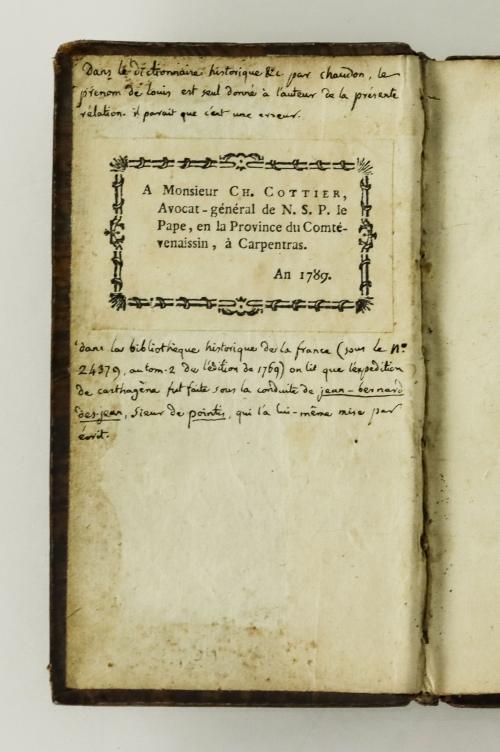 Dans le dictionnaire historique &c par chaudon, le
prenom de louis est seul donné à l'auteur de la présente
rélation. il parait que c'est une erreur.
A Monsieur CH. COTTIER,
Avocat-général de N. S. P. le
Pape, en la Province du Comté-
venaissin, à Carpentras.
An 1789.
dans la bibliothèque historique de la france (sous le N°
24379, au tom. 2 de l'édition de 1769) on lit que l'expédition
de carthagène fut faite sous la conduite de jean-bernard
des-jean, sieur de pointis, qui l'a lui-même mise par
écrit.